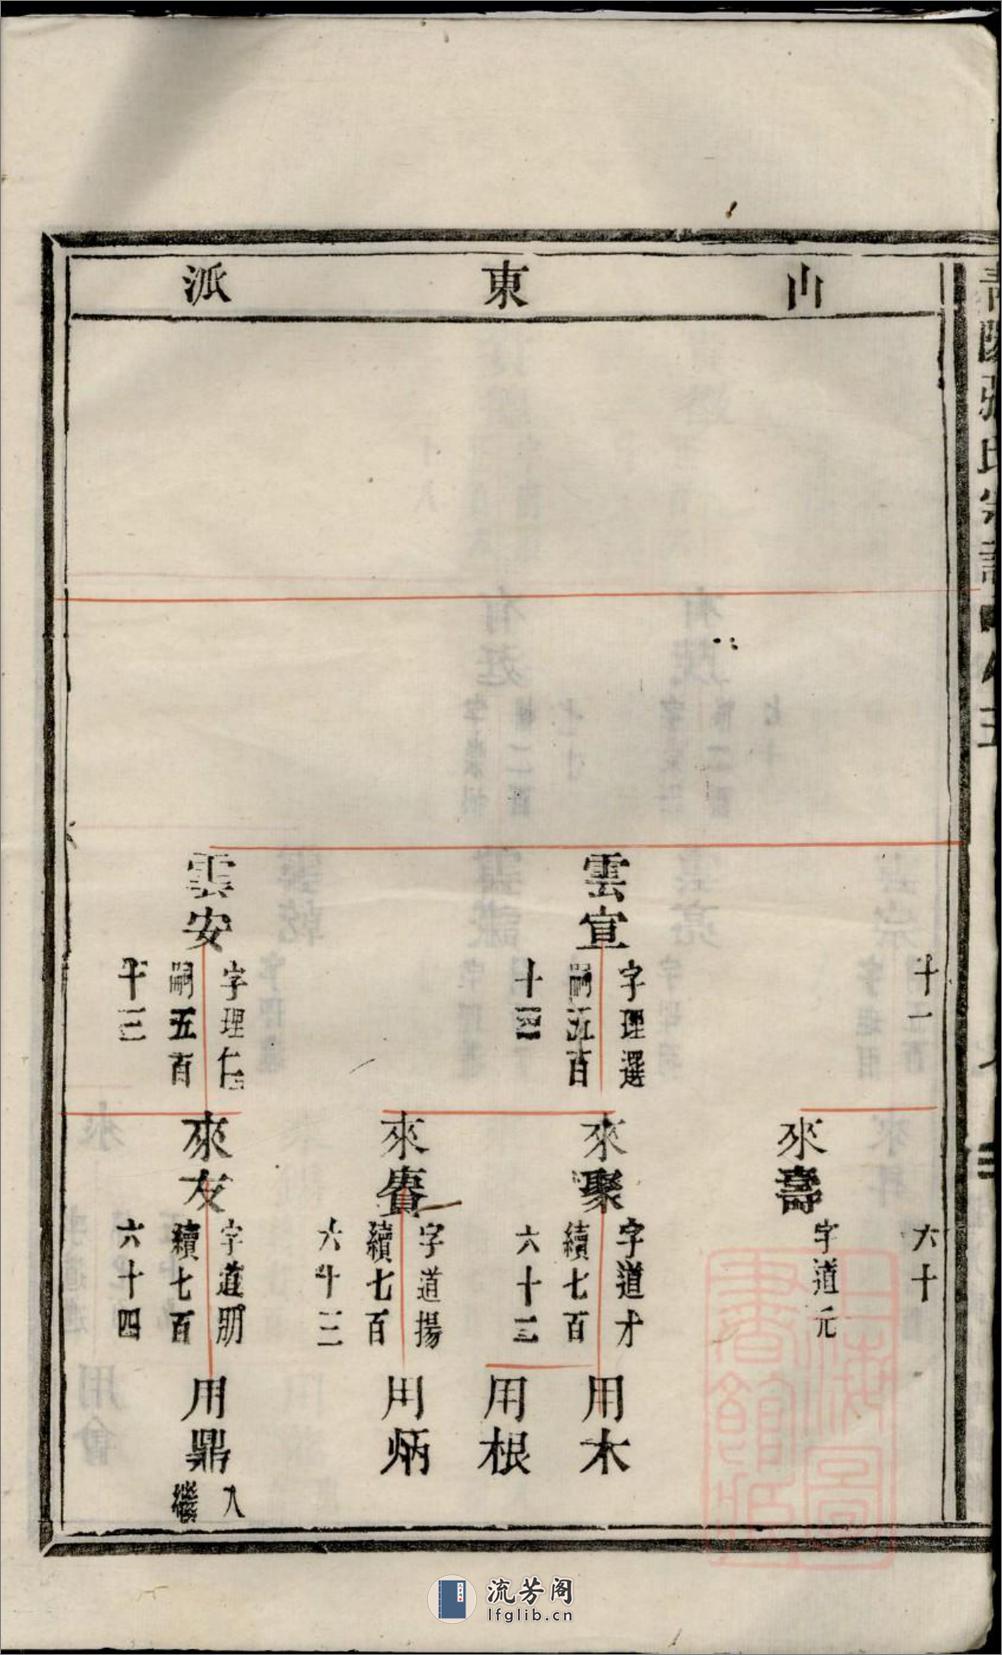 山東派
十一
雲宣
字理選
嗣五百
十三
雲安
字理仁
嗣五百
十三
來壽
字道元
六十
來聚
字道才
續七百
六十三
來賡
字道揚
續七百
六十三
來友
字道朋
續七百
六十四
用木
用根
用炳
用鼎
入
繼
上海圖
書館藏
流芳阁
lfglib.cn